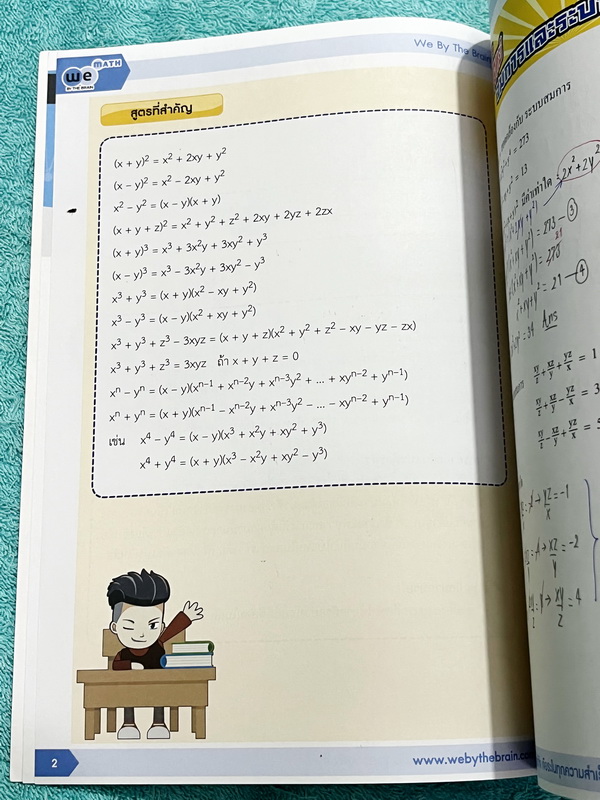 we MATH
BY THE BRAIN
We By The Brain
สูตรที่สำคัญ
(x + y)² = x² + 2xy + y²
(x – y)² = x² – 2xy + y²
x² – y² = (x – y)(x + y)
(x + y + z)² = x² + y² + z² + 2xy + 2yz + 2zx
(x + y)³ = x³ + 3x²y + 3xy² + y³
(x – y)³ = x³ – 3x²y + 3xy² – y³
x³ + y³ = (x + y)(x² – xy + y²)
x³ – y³ = (x – y)(x² + xy + y²)
x³ + y³ + z³ – 3xyz = (x + y + z)(x² + y² + z² – xy – yz – zx)
x³ + y³ + z³ = 3xyz ถ้า x + y + z = 0
xⁿ – yⁿ = (x – y)(xⁿ⁻¹ + xⁿ⁻²y + xⁿ⁻³y² + ... + xyⁿ⁻² + yⁿ⁻¹)
xⁿ + yⁿ = (x + y)(xⁿ⁻¹ – xⁿ⁻²y + xⁿ⁻³y² – ... – xyⁿ⁻² + yⁿ⁻¹)
เช่น x⁴ – y⁴ = (x – y)(x³ + x²y + xy² + y³)
x⁴ + y⁴ = (x + y)(x³ – x²y + xy² – y³)
2
www.webythebrain.com
ระบบสมการ
= 273
= 13
มีค่าเท่าใด 2x² + 2y²
= 273 – ③
= 21 – ④
= 34 Ans
xy/z + xz/y + yz/x = 1
xy/z + xz/y – yz/x = 3
xy/z – xz/y + yz/x = 5
yz/x = -1
xz/y = -2
xy/z = 4